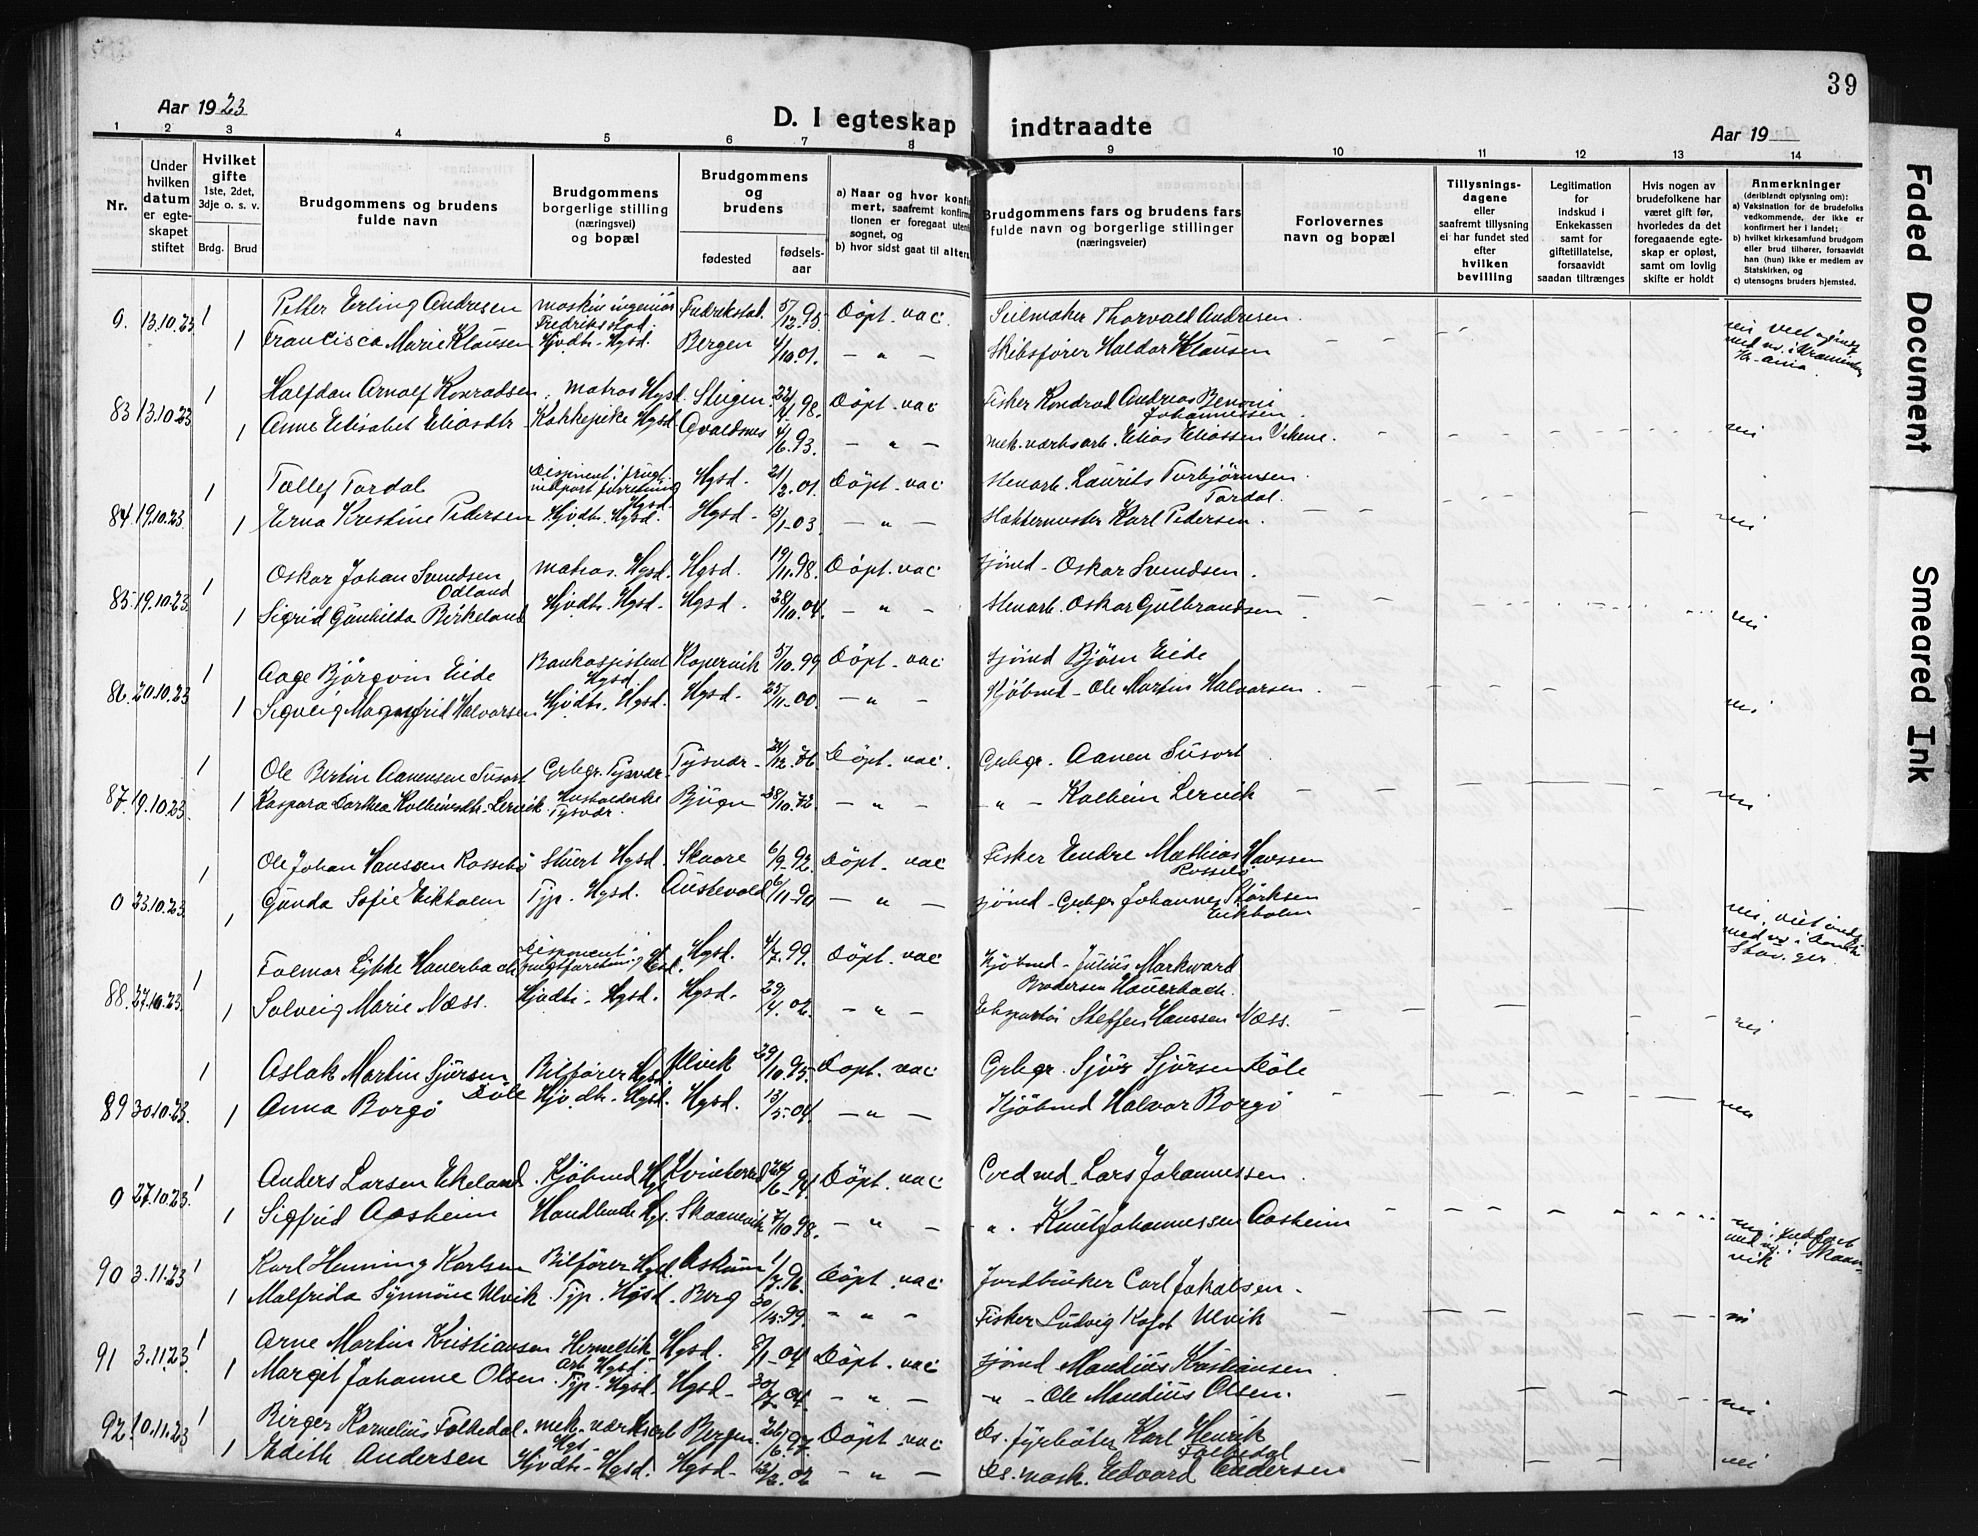 39
Aar 1923
D. I egteskap indtraadte
Aar 19
1 2 3 4 5 6 7 8 9 10 11 12 13 14
Nr.
Under hvilken datum er egteskapet stiftet
Hvilket gifte 1ste, 2det, 3dje o. s. v.
Brdg. Brud
Brudgommens og brudens fulde navn
Brudgommens borgerlige stilling (næringsvei) og bopæl
Brudgommens og brudens
fødested
fødselsaar
a) Naar og hvor konfi
mert, saafremt konfirma
tionen er foregaat uten
sognet, og
b) hvor sidst gaat til alters
Brudgommens fars og brudens fars fulde navn og borgerlige stillinger (næringsveier)
Forlovernes navn og bopæl
Tillysningsdagene eller saafremt tillysning ei har fundet sted efter hvilken bevilling
Legitimation for indskud i Enkekassen samt for giftetillatelse, forsaavidt saadan tiltrænges
Hvis nogen av brudefolkene har været gift før, hvorledes da det foregaaende egteskap er opløst, samt om lovlig skifte er holdt
Anmerkninger
(deriblandt oplysning om):
a) Vaksination for de brudefolks vedkommende, der ikke er konfirmert her i landet;
b) hvilket kirkesamfund brudgom eller brud tilhører, forsaavidt han (hun) ikke er medlem av Statskirken, og
c) utensogns bruders hjemsted.
0. 13.10.23 1 Petter Erling Andresen maskiningeniør Fredriksstad. Fredrikstad. 5/12.95 Döpt. vac. Seilmaker Thorvald Andresen
1 Francisca Marie Klausen Hjvdtr. Hgsd. Bergen 4/10.01. — " — Skibsfører Haldor Klausen
83 13.10.23 1 Halfdan Arnolf Konradsen, matros Hgsd. Steigen 22/4.98. Döpt. vac Fisker Kondrad Andreas Benoni Johannessen.
1 Anne Elisabet Eliasdtr Kokkepike Hgsd Avaldsnes 4/6.93. — " — mek. værksarb. Elias Eliassen Vikene. nei
84 19.10.23 1 Tollef Tordal Disponent i frugtimportforretning Hgsd. Hgsd. 21/2.01. Döpt. vac Stenarb. Laurits Torbjørnsen Tordal.
1 Erna Kristine Pedersen Hjvdtr. Hgsd. Hgsd. 13/1-03 — " — Karl Pedersen. nei
85 19.10.23 1 Oskar Johan Svendsen Odland matros. Hgsd. Hgsd. 19/11.98. Döpt. vac sjömd - Oskar Svendsen.
1 Sigrid Gunhilda Birkeland Hjvdtr. Hgsd. Hgsd. 28/10.04. — " — Stenarb. Oskar Gulbrandsen nei
86. 20.10.23 1 Aage Björgvin Eide Bankassistent Hgsd. Kopervik 5/10.99 Döpt. vac sjömd Björn Eide
1 Sigveig Magnfrid Halvorsen Hjvdtr. Hgsd. Hgsd. 25/11-00. — " — Kjöbmd - Ole Martin Halvorsen. nei
87. 19.10.23. 1 Ole Bertin Aanensen Susort Grbgr. Tysvær. Tysvær - 24/12.76. Döpt. vac. Grbgr. Aanen Susort
1 Kaspara Dorthea Kolbeinsdtr. Lervik Husholderske Tysvær. Bjugn 28/10.72. — " — " — Kolbein Lervik nei
0 23.10.23. 1 Ole Johan Hanssen Rossebö Stuert Hgsd. Skaare 6/9.92. Döpt. vac Fisker Endre Mathias Hanssen Rossebö
1 Gunda Sofie Eikholm Typ. Hgsd. Austevold 6/11-90 — " — sjömd - Grbgr Johannes Störksen Eikholm
88. 27.10.23. 1 Folmar Lykke Hauerbach Disponent i frugtforretning Hgsd. Hgsd. 4/7.99. Döpt. vac Kjöbmd - Julius Markward Brodersen Hauerbach.
1 Solveig Marie Næss. Hjvdtr. Hgsd. Hgsd. 29/4.02. — " — Steffen Hanssen Næss. nei
89 30.10.23. 1 Aslak Martin Sjursen Döle Bilfører Hgsd. Ulvik 29/10.95. Döpt. vac Grbgr. Sjur Sjursen Döle
1 Anna Borgö Hjvdtr. Hgsd. Hgsd. 13/5-04. — " — Kjöbmd Halvor Borgö nei
0 27.10.23. 1 Anders Larsen Ekeland. Kjöbmd Hgsd. Kvinherad 24/6-94 Döpt. vac Lars Johannessen.
1 Sigfrid Aasheim Skaanevik 7/10.98. — " — ". Knut Johannessen Aasheim
90 3.11.23 1 Karl Henning Karlsen Bilfører Hgsd. Askum 1/7.96. Döpt. vac Jordbruker Carl Jakobsen.
1 Malfrida Synnöve Ulvik. Typ. Hgsd. Borg — " — Fisker Ludvig Ulvik
91 3.11.23. 1 Arne Martin Kristiansen Hermetikarb. Hgsd. Hgsd. 8/1-04 Döpt. vac sjömd - Mandius Kristiansen
1 Margit Johanne Olsen. Typ. Hgsd. Hgsd - — " — " - Ole Mandius Olsen. nei
92. 10.11.23 1 Birger Kornelius Folkedal. mek. værkstarb Hgs- Bergen. 26/6.97. Döpt. vac Ds. fyrböter Karl Henrik Folkedal
1 Edith Andersen Hjvdtr. Hgsd. Hgsd - — " — Ds. mask. Edvard Andersen nei
Faded Document
Smeared Ink